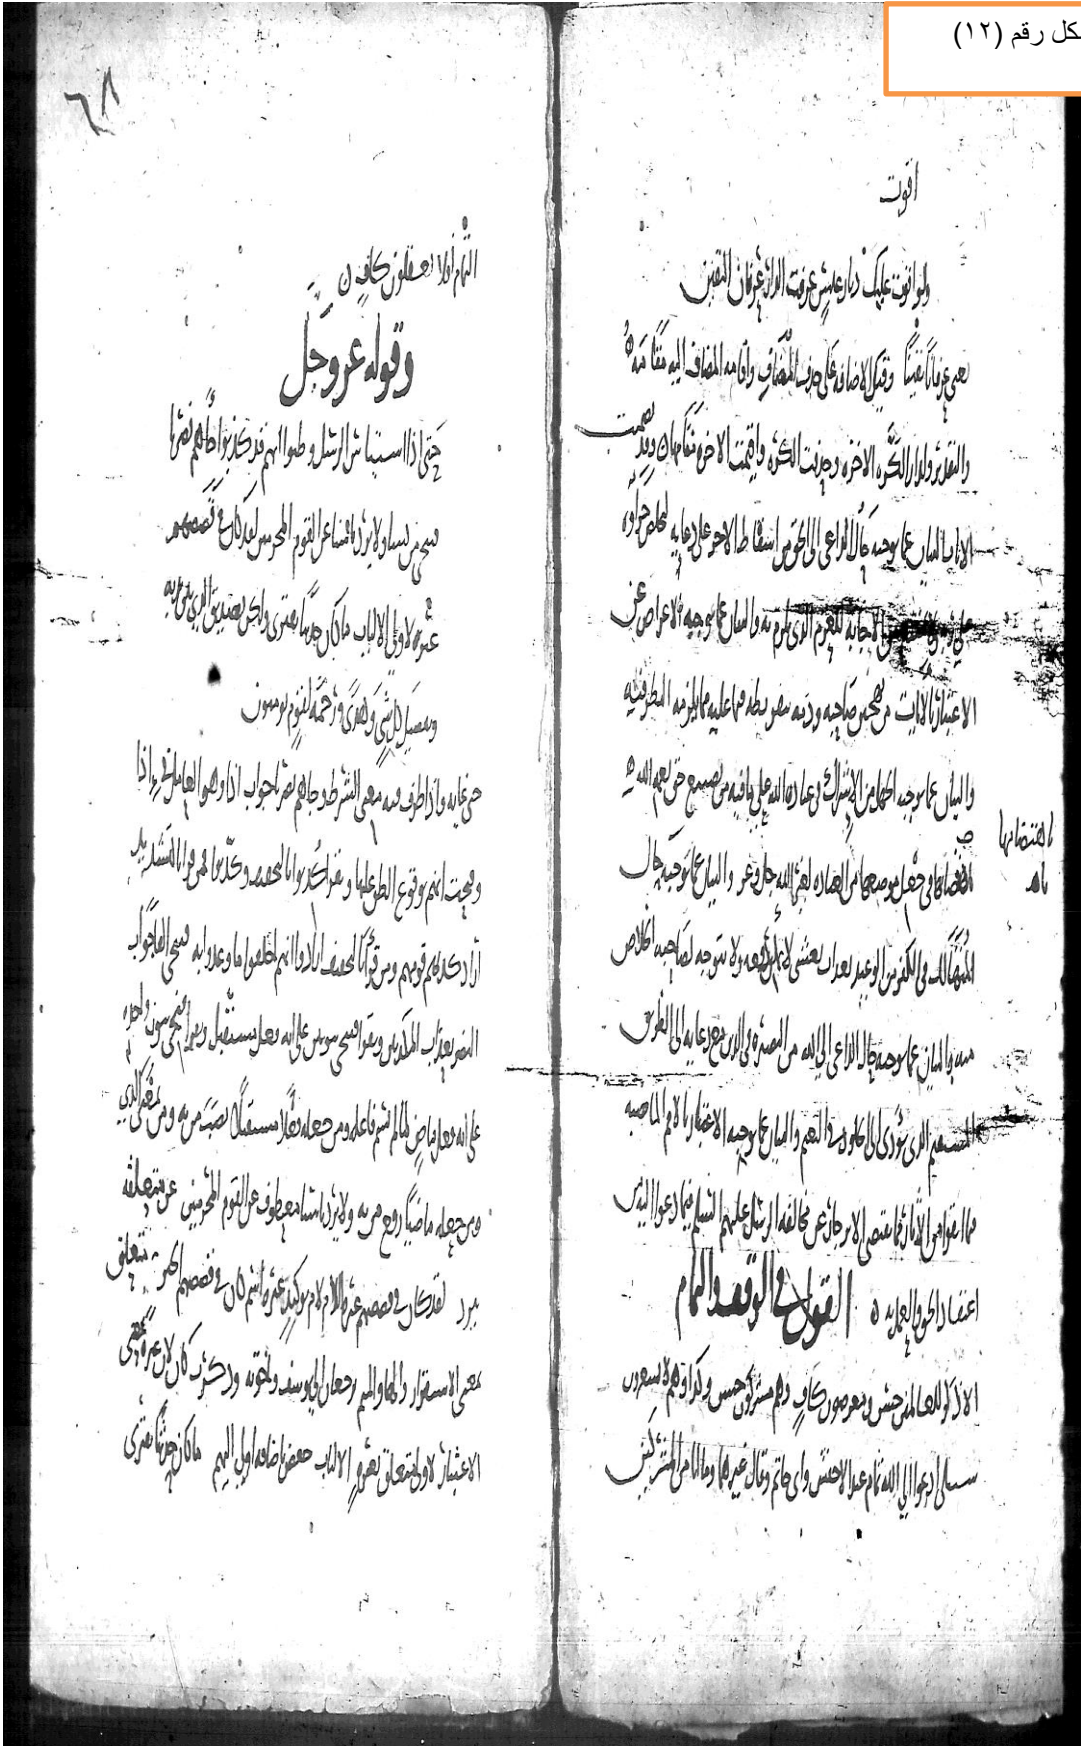 كل رقم (١٢)
اقوت
ولو اقوت عليك ديار عبس عرفت الذل عرفان اليقين
يعني عرفانا يقينا وقيل الاضافه على حذف المضاف واقامه المضاف اليه مقامه
والتقدير ولدار الكره الاخره وحذفت الكره واقيمت الاخره مقامها وقد تضمنت
الايات البيان عما يوجبه حال الداعي الى الحق من اسقاط الاجر على دعايه
الاجابة للمغرم الذي يلزم به والبيان عما يوجبه الاعراض عن
الاعتبار بالايات من صاحبه وذمه بتفريطه فيما عليه مما يلزمه النظر فيه
والبيان عما يوجبه الجهل من الاشراك في عباده الله
موضعها من العباده لغير الله جل وعز والبيان عما يوجبه حال
باقتضائها
المتهالك في الكفر من الوعيد بعذاب يغشى لا يمكن دفعه ولا يتوجه لصاحبه الخلاص
منه والبيان عما يوجبه حال الداعي الى الله من البصيره في الدين مع دعايه الى الطريق
المستقيم الذي يؤدي الى الخلود في النعيم والبيان عما يوجبه الاعتبار بالامم الماضيه
عن مخالفه الرسل عليهم السلم فيما دعوا اليه من
اعتقاد الحق والعمل به القول في الوقف والتمام
الا ذكر للعالمين حسن ومعرضون كاف وهم مشركون حسن وكذا وهم لا يشعرون
سبيلي ادعوا الى الله تمام عند الاخفش وابي حاتم وقال غيرهما وما انا من المشركين
٦٨
التمام افلا تعقلون كاف
وقوله عز وجل
حتى اذا استيئاس الرسل وظنوا انهم قد كذبوا جاهم نصرنا
فنجي من نشاء ولا يرد باسنا عن القوم المجرمين لقد كان في قصصهم
عبره لاولي الالباب ما كان حديثا يفترى ولكن تصديق الذي بين يديه
وتفصيل كل شي وهدى ورحمة لقوم يومنون
حتى غايه واذا ظرف فيه معنى الشرط وجاهم نصرنا جواب اذا وهو العامل في اذا
وفتحت انهم بوقوع الظن عليها ويقرا كذبوا بالتخفيف وكذبوا فمن قرا بالتشديد
اراد كذبهم قومهم ومن قرا بالتخفيف اراد وا انهم اخلفوا ما وعدوا به فنجي الفا جواب
النصر بعذاب المكذبين ويقرا فننجي بنونين على انه فعل مستقبل ويقرا فنجي بنون واحده
على انه فعل ماض لما لم يسم فاعله ومن جعله فعلا مستقبلا نصب من به ومن بمعنى الذي
ومن جعله ماضيا رفع من به ولا يرد باسنا معطوف عن القوم المجرمين عن متعلقه
بيرد لقد كان في قصصهم عبره اللام لام توكيد عبره اسم كان في قصصهم الخبر يتعلق
بمعنى الاستقرار والها والميم يرجعان الى يوسف واخوته وذكرت كان لان عبره بمعنى
الاعتبار لاولي يتعلق بعبره الالباب خفض باضافه اولي اليهم ما كان حديثا يفترى